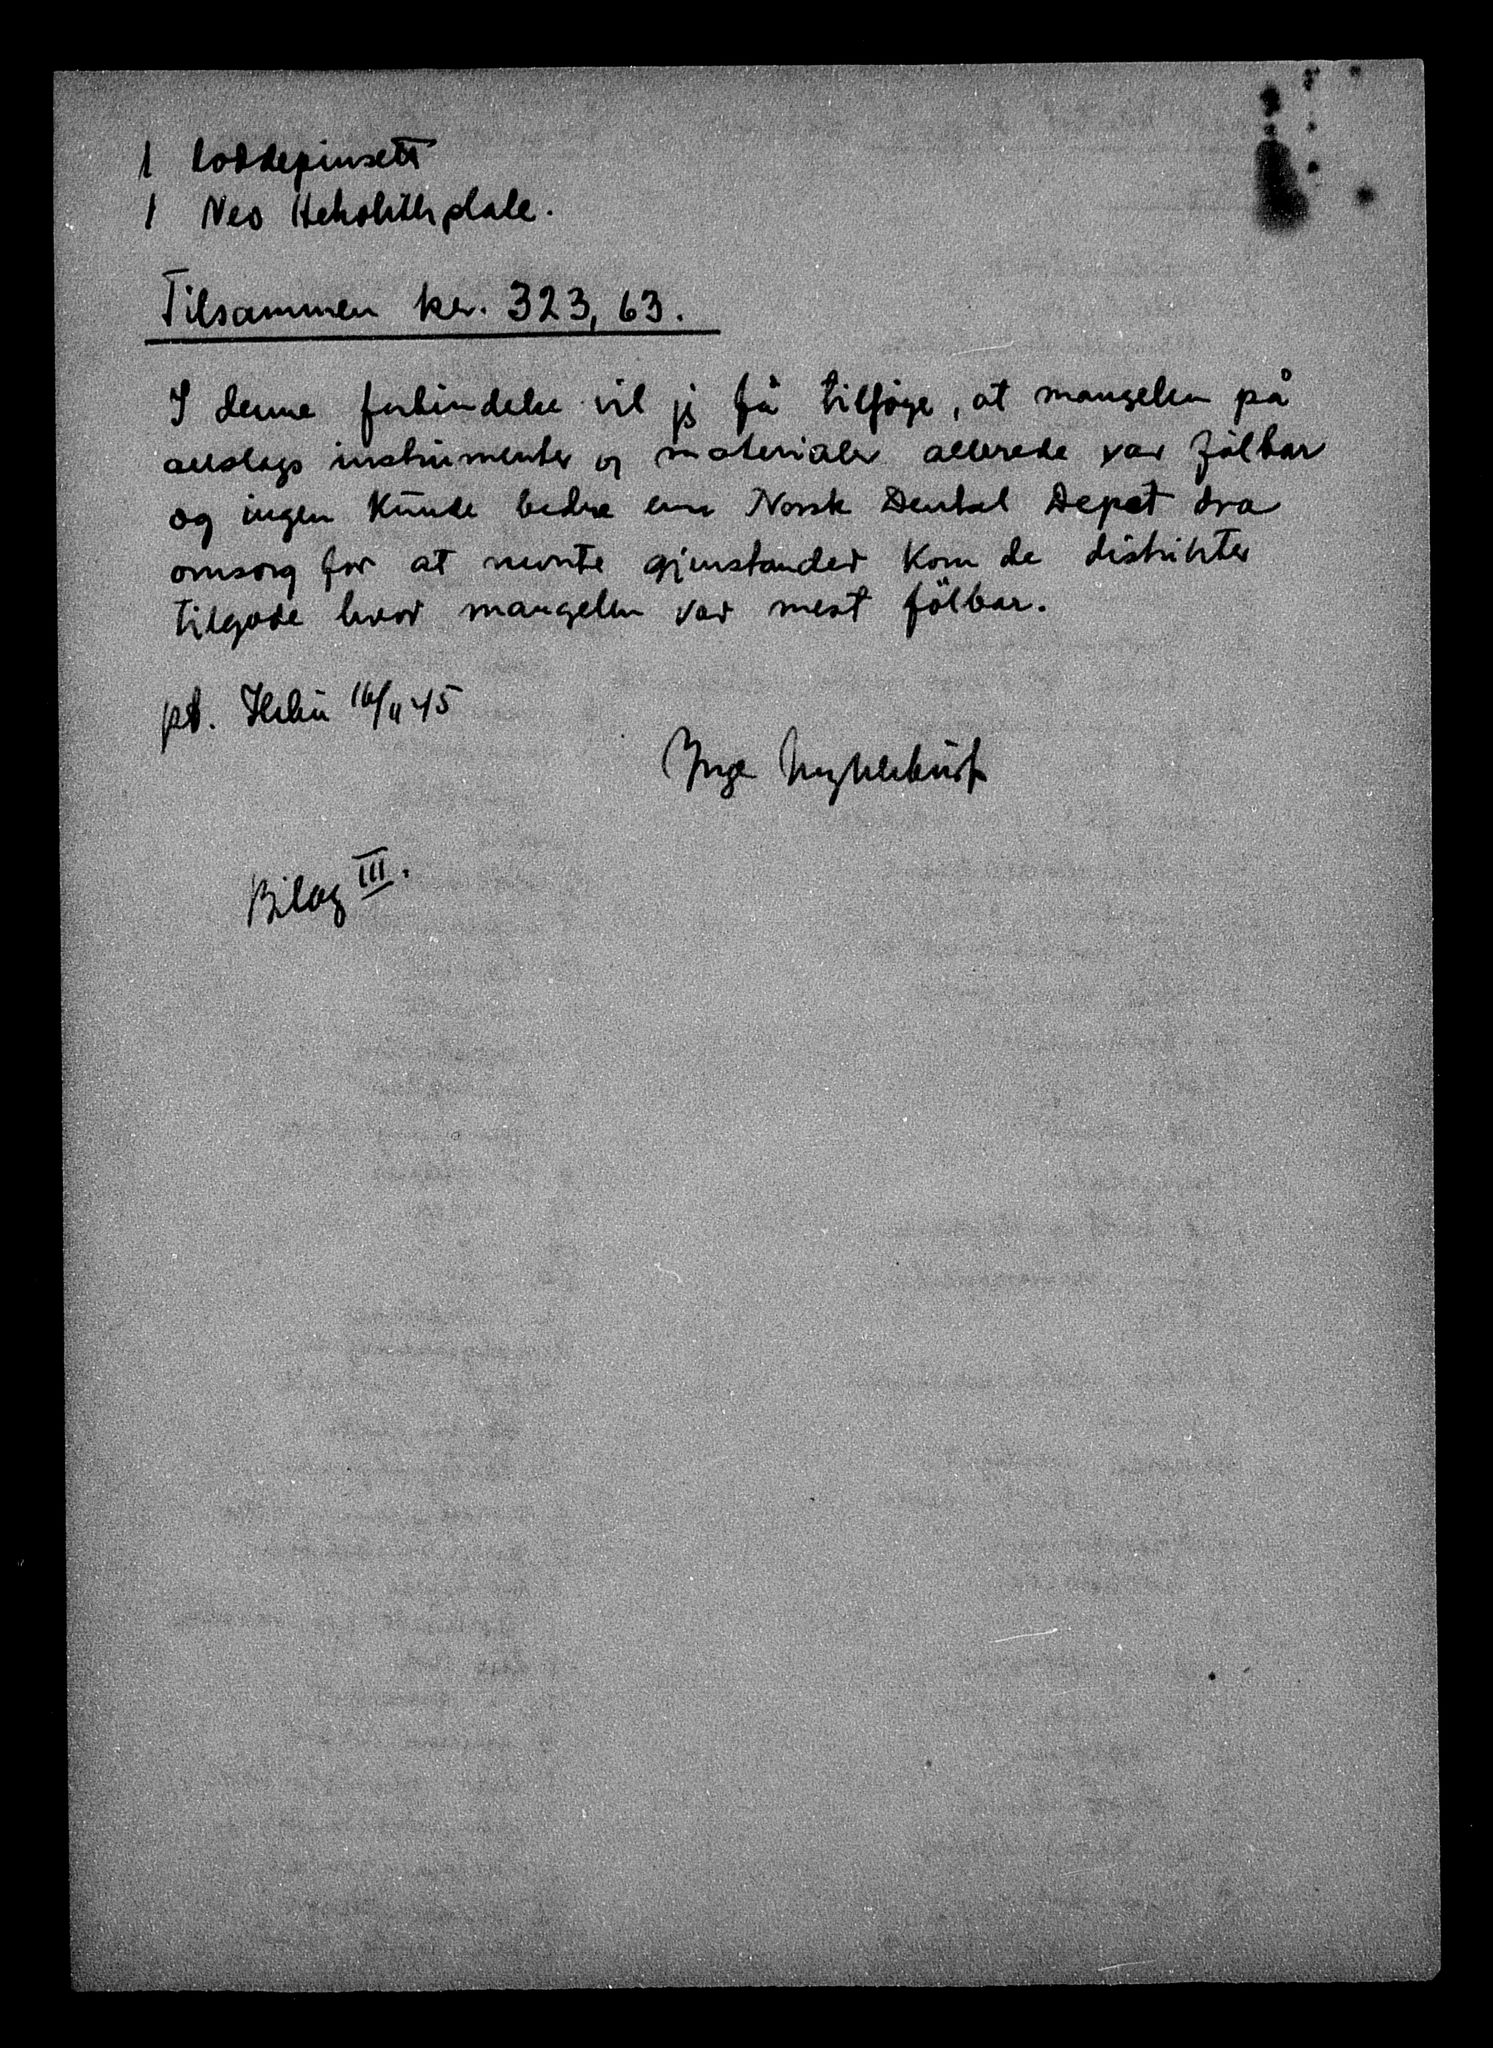 1 Loddepinsett
1 Neo Hekolithplate.
Tilsammen kr. 323,63.
I denne forbindelse vil jeg få tilföje, at mangelen på
allslags instrumenter og materialer allerede var fölbar
og ingen kunde bedre enn Norsk Dental Depot dra
omsorg for at nevnte gjenstander kom de distrikter
tilgode hvor mangelen var mest fölbar.
pt. Ilebu 16/11 45
Inge
Bilag III.